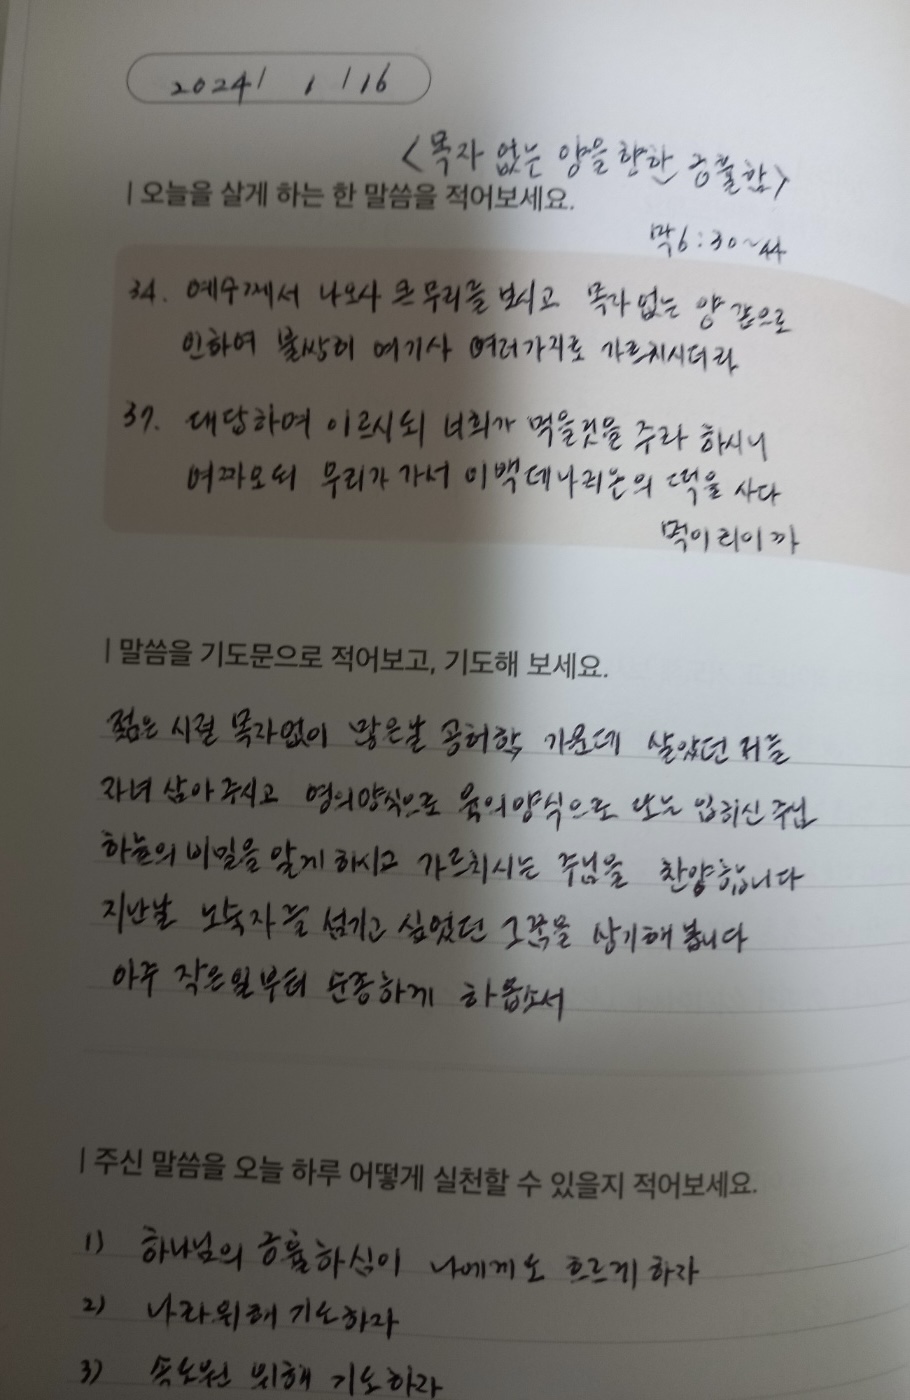 2024/ 1 /16
<목자 없는 양을 향한 긍휼함>
| 오늘을 살게 하는 한 말씀을 적어보세요.
막6:30~44
34. 예수께서 나오사 큰 무리를 보시고 목자 없는 양 같으로
인하여 불쌍히 여기사 여러가지로 가르치시더라
37. 대답하여 이르시되 너희가 먹을것을 주라 하시니
여짜오되 무리가 가서 이백데나리온의 떡을 사다
먹이리이까
| 말씀을 기도문으로 적어보고, 기도해 보세요.
젊은 시절 목자없이 많은날 공허함 가운데 살았던 저를
자녀 삼아 주시고 영의양식으로 육의양식으로 입히신 주님
하늘의 비밀을 알게 하시고 가르치시는 주님을 찬양합니다
지난날 노숙자를 섬기고 싶었던 그 꿈을 상기해 봅니다
아주 작은일부터 순종하게 하옵소서
| 주신 말씀을 오늘 하루 어떻게 실천할 수 있을지 적어보세요.
1) 하나님의 긍휼하심이 나에게도 흐르게 하자
2) 나라위해 기도하자
3) 속도원 위해 기도하라